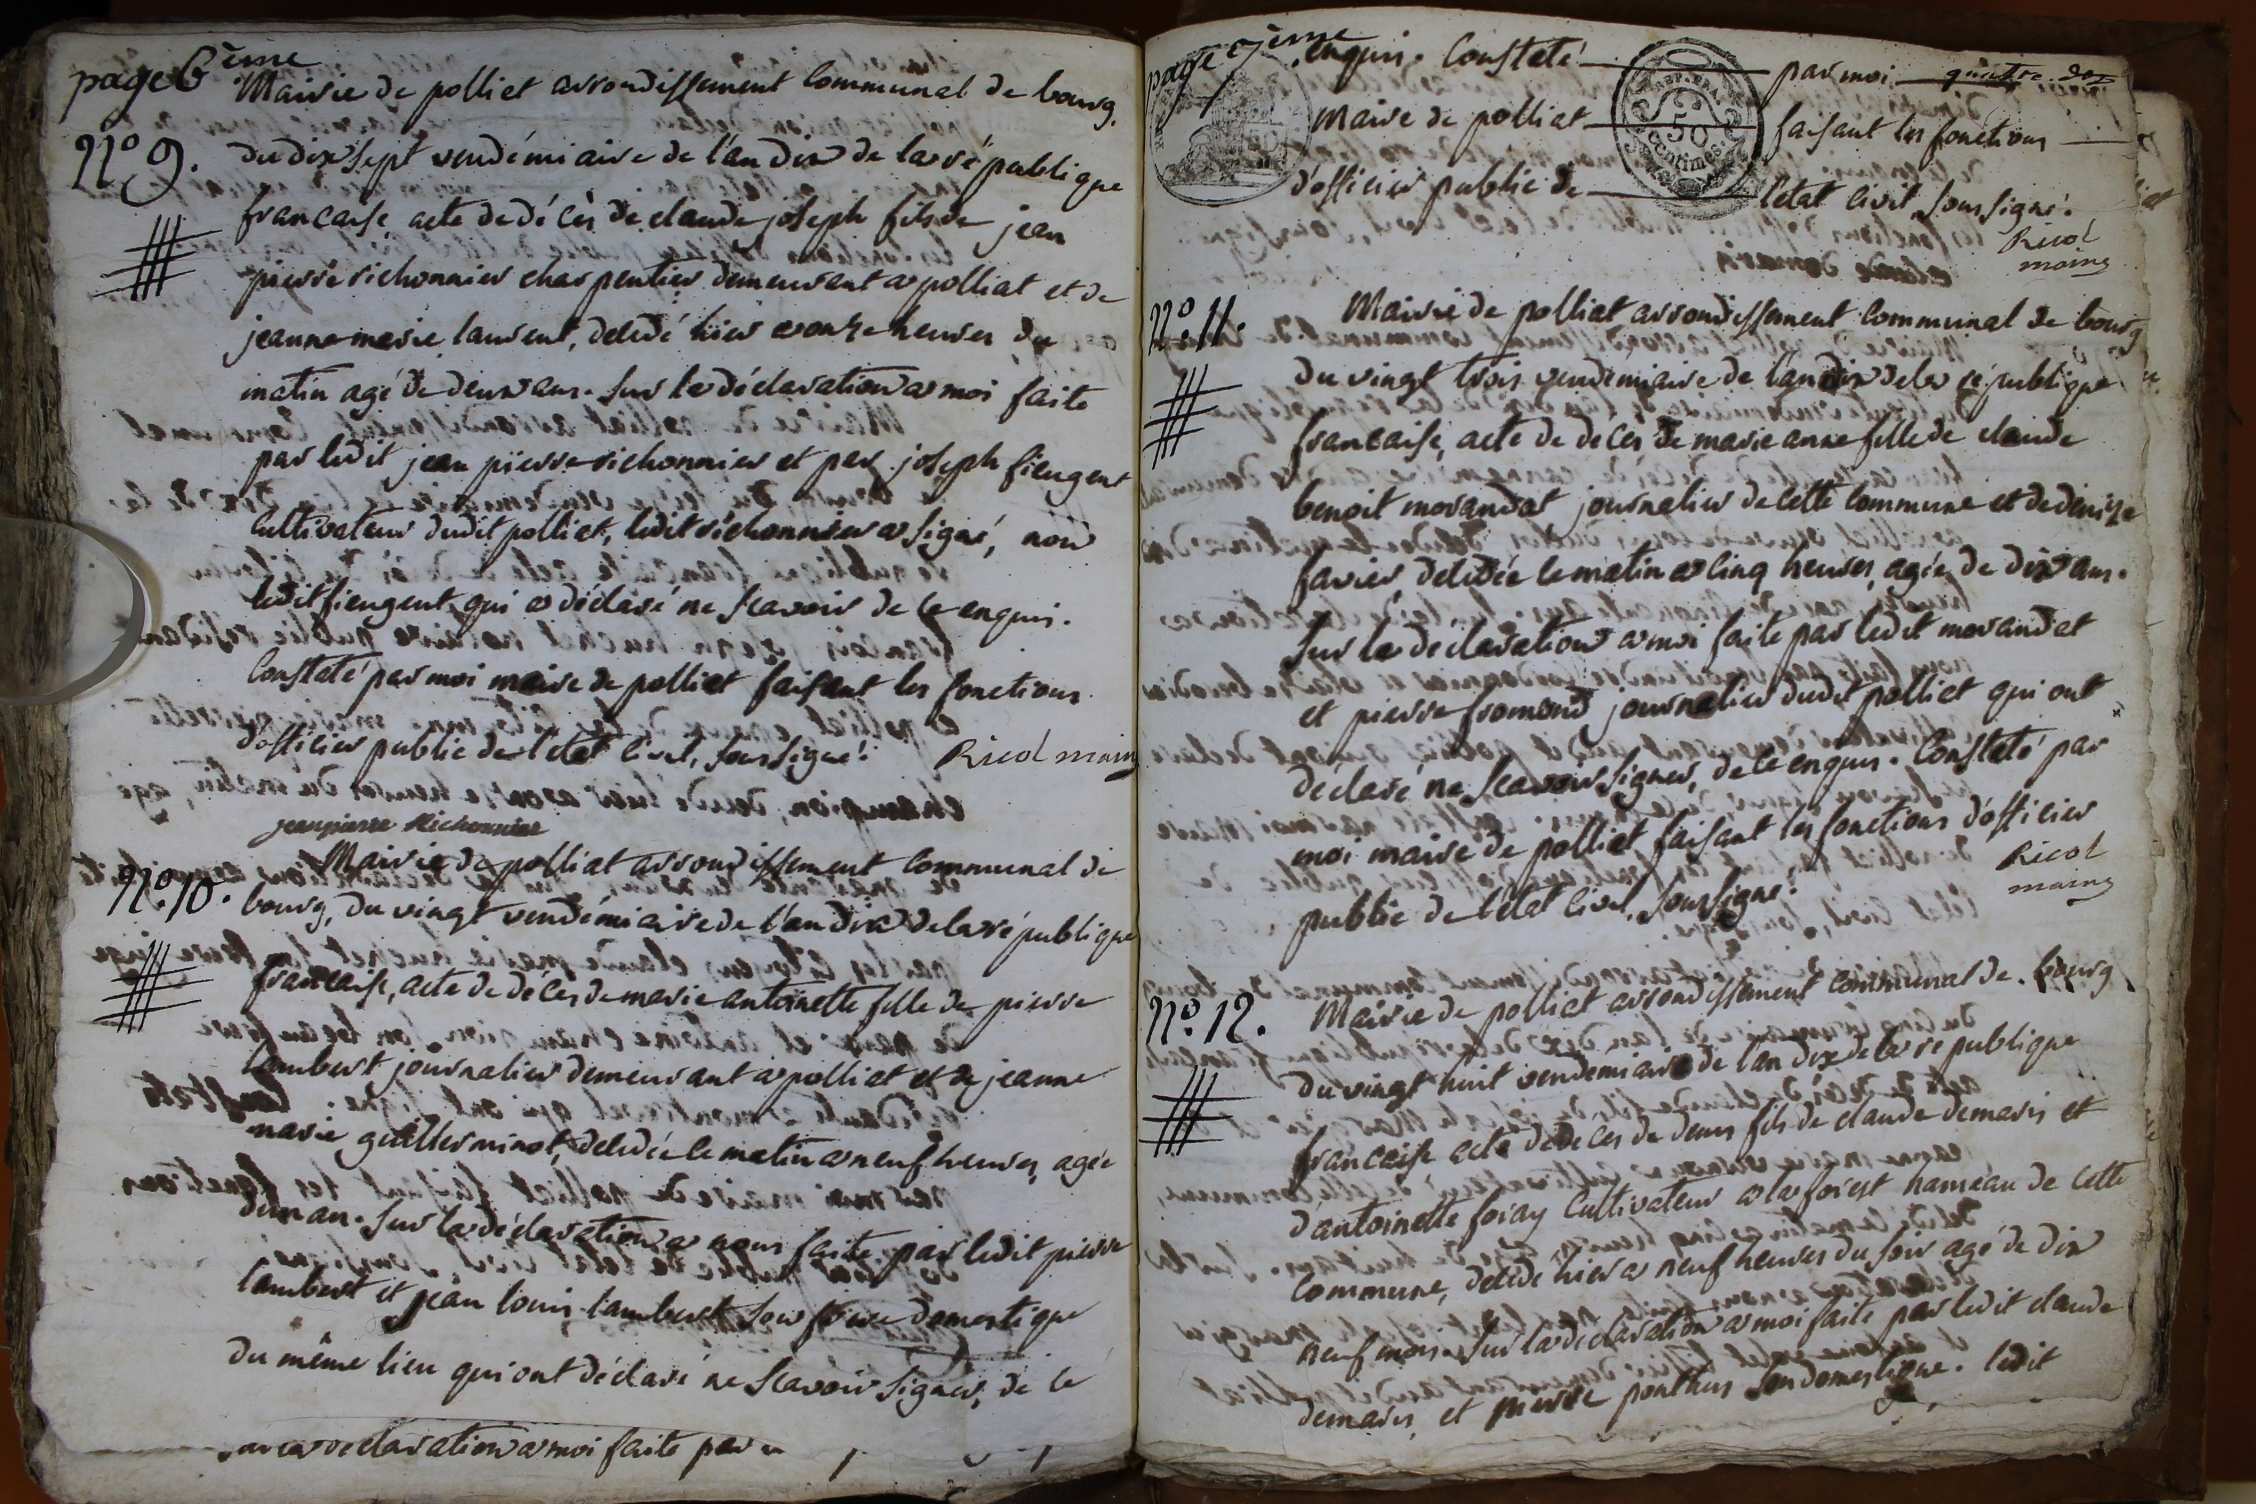 page 6ème
Mairie de polliat arrondissement Communal de bourg.
N.º 9.
du dix sept vendémiaire de l'an dix de la république
francaise, acte de décès de claude joseph fils de jean
pierre richonnier charpentier demeurant a polliat et de
jeanne marie laurent, décédé hier a onze heures du
matin agé de deux ans. Sur la déclaration a moi faite
par ledit jean pierre richonnier et par joseph fieugent
Cultivateur dudit polliat, ledit richonnier a signé, non
ledit fieugent qui a déclaré ne scavoir de ce enquis.
Constaté par moi maire de polliat faisant les fonctions
d'officier public de l'état civil, soussigné.
Ricol maire
jeanpierre Richonnier
Mairie de polliat arrondissement Communal de
N.º 10.
bourg, du vingt vendémiaire de l'an dix de la république
francaise, acte de décès de marie antoinette fille de pierre
Lambert journalier demeurant a polliat et de jeanne
marie guillerminot, décédée ce matin a neuf heures, agée
d'un an. Sur la déclaration a nous faite par ledit pierre
Lambert et jean louis lambert son frère domestique
du même lieu qui ont déclaré ne scavoir signer, de ce
declaration a moi faite par
page 7ème
enquis. Constaté par moi quatre
maire de polliat faisant les fonctions
d'officier public de l'état civil, soussigné.
REP. FRA.
50
Centimes.
Ricol
maire
claude demaris
Mairie de polliat arrondissement Communal de bourg
N.º 11.
du vingt trois vendémiaire de l'an dix de la république
francaise, acte de décès de marie anne fille de claude
benoit morandat journalier de cette commune et de denize
favier, décédée ce matin a cinq heures, agée de dix ans.
Sur la déclaration a moi faite par ledit morandat
et pierre fromond journalier dudit polliat qui ont
déclaré ne scavoir signer, de ce enquis. Constaté par
moi maire de polliat faisant les fonctions d'officier
public de l'état civil, soussigné.
Ricol
maire
N.º 12.
Mairie de polliat arrondissement communal de bourg
du vingt huit vendémiaire de l'an dix de la république
francaise acte de décès de denis fils de claude demaris et
d'antoinette foray Cultivateur a la forest hameau de cette
Commune, décédé hier a neuf heures du soir agé de dix
neuf mois. Sur la déclaration a moi faite par ledit claude
demaris, et pierre ponthus son domestique. ledit